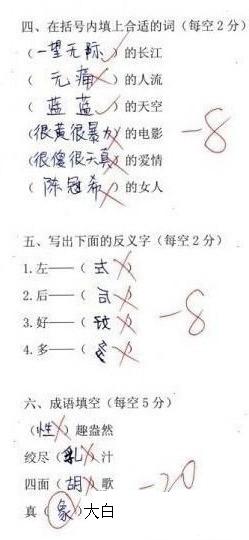 四、在括号内填上合适的词（每空2分）
（一望无际）的长江
（无痛）的人流
（蓝蓝）的天空
（很黄很暴力）的电影
（很傻很天真）的爱情
（陈冠希）的女人
-8
五、写出下面的反义字（每空2分）
1.左——（ ）
2.后——（ ）
3.好——（ ）
4.多——（ ）
-8
六、成语填空（每空5分）
（性）趣盎然
绞尽（乳）汁
四面（胡）歌
真（象）大白
-20